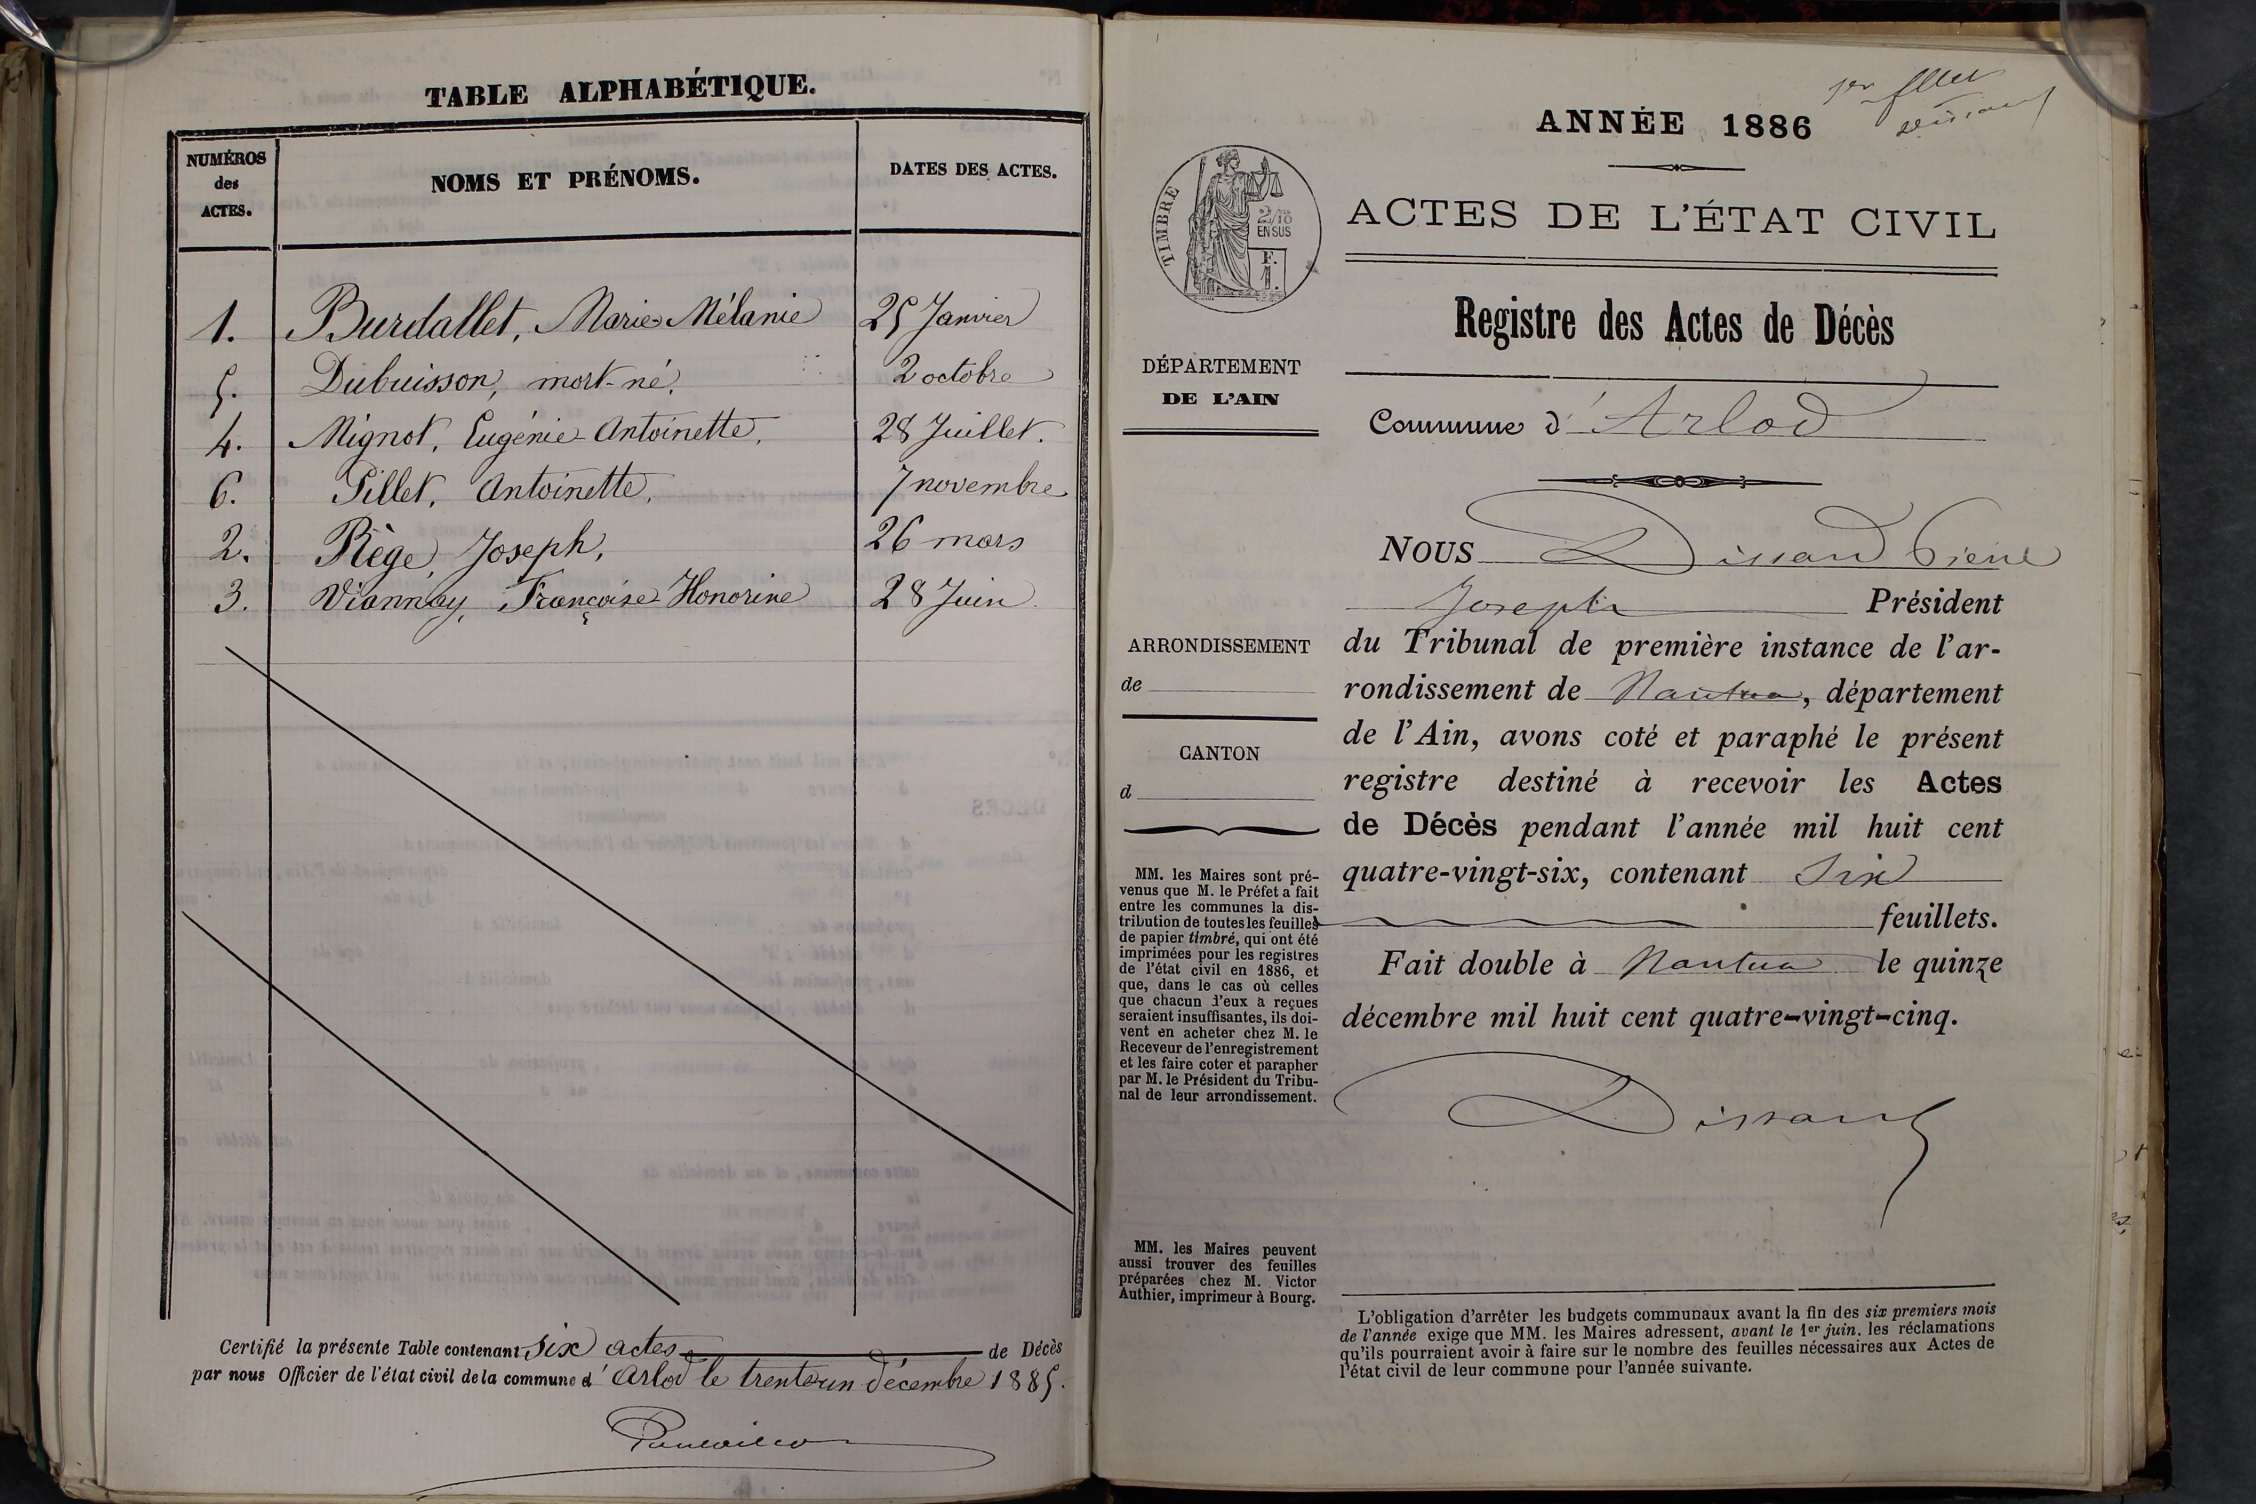 TABLE ALPHABÉTIQUE.
NUMÉROS
des
ACTES.
NOMS ET PRÉNOMS.
DATES DES ACTES.
1. Burdallet, Marie-Mélanie 25 Janvier
5. Dubuisson, mort-né. 2 octobre
4. Mignot, Eugénie-Antoinette. 28 Juillet.
6. Pillet, Antoinette. 7 novembre
2. Rège, Joseph, 26 mars
3. Viannay, Françoise-Honorine 28 Juin
Certifié la présente Table contenant six actes de Décès
par nous Officier de l'état civil de la commune d'Arlod le trente-un décembre 1885.
1er
ANNÉE 1886
TIMBRE
2/10
EN SUS
F.
1.
ACTES DE L'ÉTAT CIVIL
Registre des Actes de Décès
DÉPARTEMENT
DE L'AIN
Commune d'Arlod
NOUS Dissard Pierre
Joseph Président
du Tribunal de première instance de l'ar-
rondissement de Nantua, département
de l'Ain, avons coté et paraphé le présent
registre destiné à recevoir les Actes
de Décès pendant l'année mil huit cent
quatre-vingt-six, contenant Six
feuillets.
Fait double à Nantua le quinze
décembre mil huit cent quatre-vingt-cinq.
Dissard
ARRONDISSEMENT
de
CANTON
d
MM. les Maires sont pré-
venus que M. le Préfet a fait
entre les communes la dis-
tribution de toutes les feuilles
de papier timbré, qui ont été
imprimées pour les registres
de l'état civil en 1886, et
que, dans le cas où celles
que chacun d'eux a reçues
seraient insuffisantes, ils doi-
vent en acheter chez M. le
Receveur de l'enregistrement
et les faire coter et parapher
par M. le Président du Tribu-
nal de leur arrondissement.
MM. les Maires peuvent
aussi trouver des feuilles
préparées chez M. Victor
Authier, imprimeur à Bourg.
L'obligation d'arrêter les budgets communaux avant la fin des six premiers mois
de l'année exige que MM. les Maires adressent, avant le 1er juin, les réclamations
qu'ils pourraient avoir à faire sur le nombre des feuilles nécessaires aux Actes de
l'état civil de leur commune pour l'année suivante.